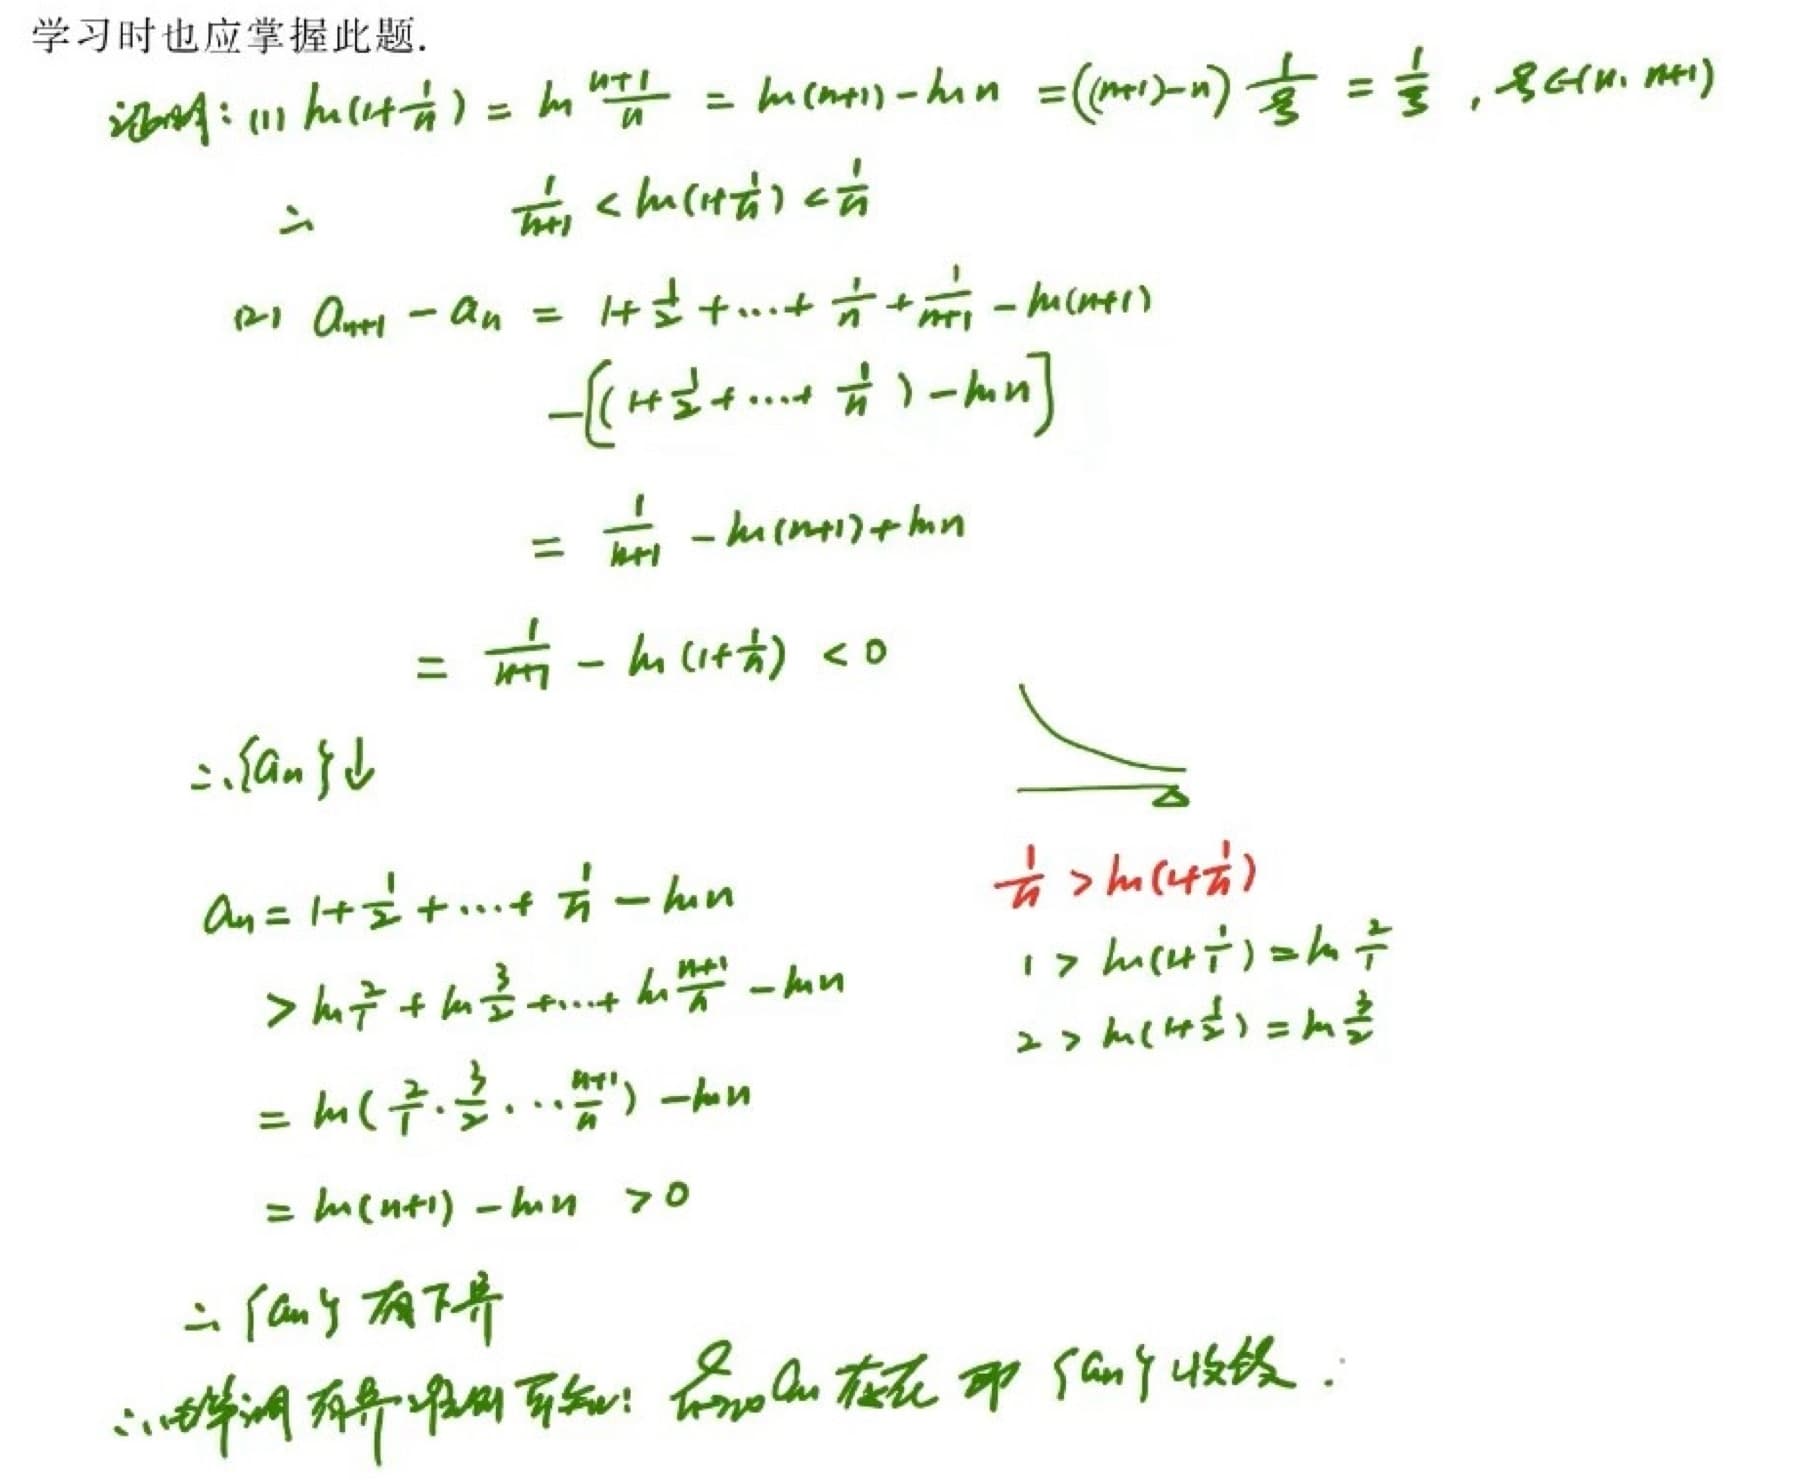 学习时也应掌握此题.
证明: (1) ln(1+1/n) = ln (n+1)/n = ln(n+1) - ln n = ((n+1)-n) 1/ξ = 1/ξ , ξ∈(n, n+1)
∴ 1/(n+1) < ln(1+1/n) < 1/n
(2) a_{n+1} - a_n = 1+1/2+...+1/n+1/(n+1) - ln(n+1)
-[(1+1/2+...+1/n) - ln n]
= 1/(n+1) - ln(n+1) + ln n
= 1/(n+1) - ln(1+1/n) < 0
∴ {a_n}↓
a_n = 1+1/2+...+1/n - ln n
> ln 2/1 + ln 3/2 + ... + ln (n+1)/n - ln n
= ln(2/1 · 3/2 · ·· (n+1)/n) - ln n
= ln(n+1) - ln n > 0
1/n > ln(1+1/n)
1 > ln(1+1/1) = ln 2/1
2 > ln(1+1/2) = ln 3/2
∴ {a_n} 有下界
∴ 由单调有界准则可知: lim_{n→∞} a_n 存在 即 {a_n} 收敛.